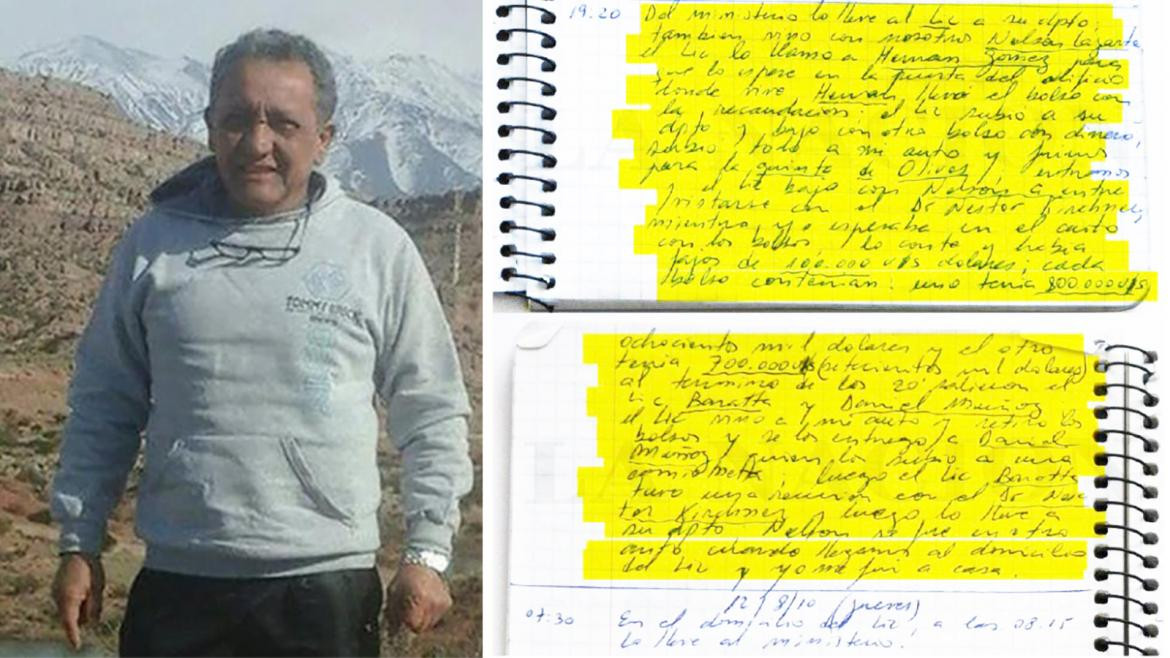 TOMMY BROOK
19:20 Del ministerio lo lleve al Lic a su dpto;
tambien vino con nosotros Nelson Lazarte
el Lic lo llamo a Hernan Gomez para
que lo espere en la puerta del edificio
donde vive Hernan llevó el bolso con
la recaudacion; el Lic subio a su
dpto y bajo con otro bolso con dinero,
subio todo a mi auto y fuimos
para la quinta de Olivos y entramos
el Lic bajo con Nelson a entre
vistarse con el Dr Nestor Kirchner,
mientras yo esperaba en el auto
con los bolsos, lo conte y habia
fajos de 100.000 u$s dolares; cada
bolso contenian: uno tenia 800.000 u$s
ochociento mil dolares y el otro
tenia 700.000 u$s (setecientos mil dolares)
al termino de los 20' salieron el
Lic Baratta y Daniel Muñoz
el Lic vino a mi auto y retiro los
bolsos y se los entrego a Daniel
Muñoz quien lo subio a una
camioneta, luego el Lic Baratta
tuvo una reunion con el Dr Nes
tor Kirchner y luego lo lleve a
su dpto Nelson se fue en otro
auto cuando llegamos al domicilio
del Lic y yo me fui a casa.
12/8/10 (jueves)
07:30 En el domicilio del Lic, a las 08.15
lo lleve al ministerio.